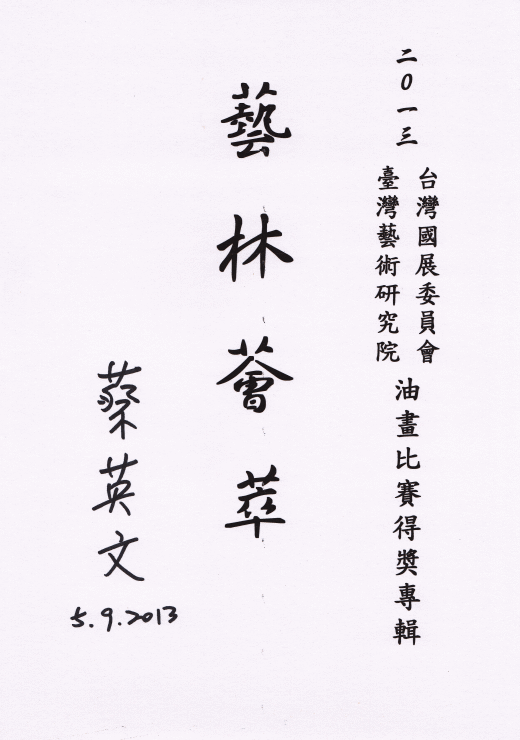 二0一三
台灣國展委員會
臺灣藝術研究院
油畫比賽得獎專輯
藝林薈萃
蔡英文
5.9.2013